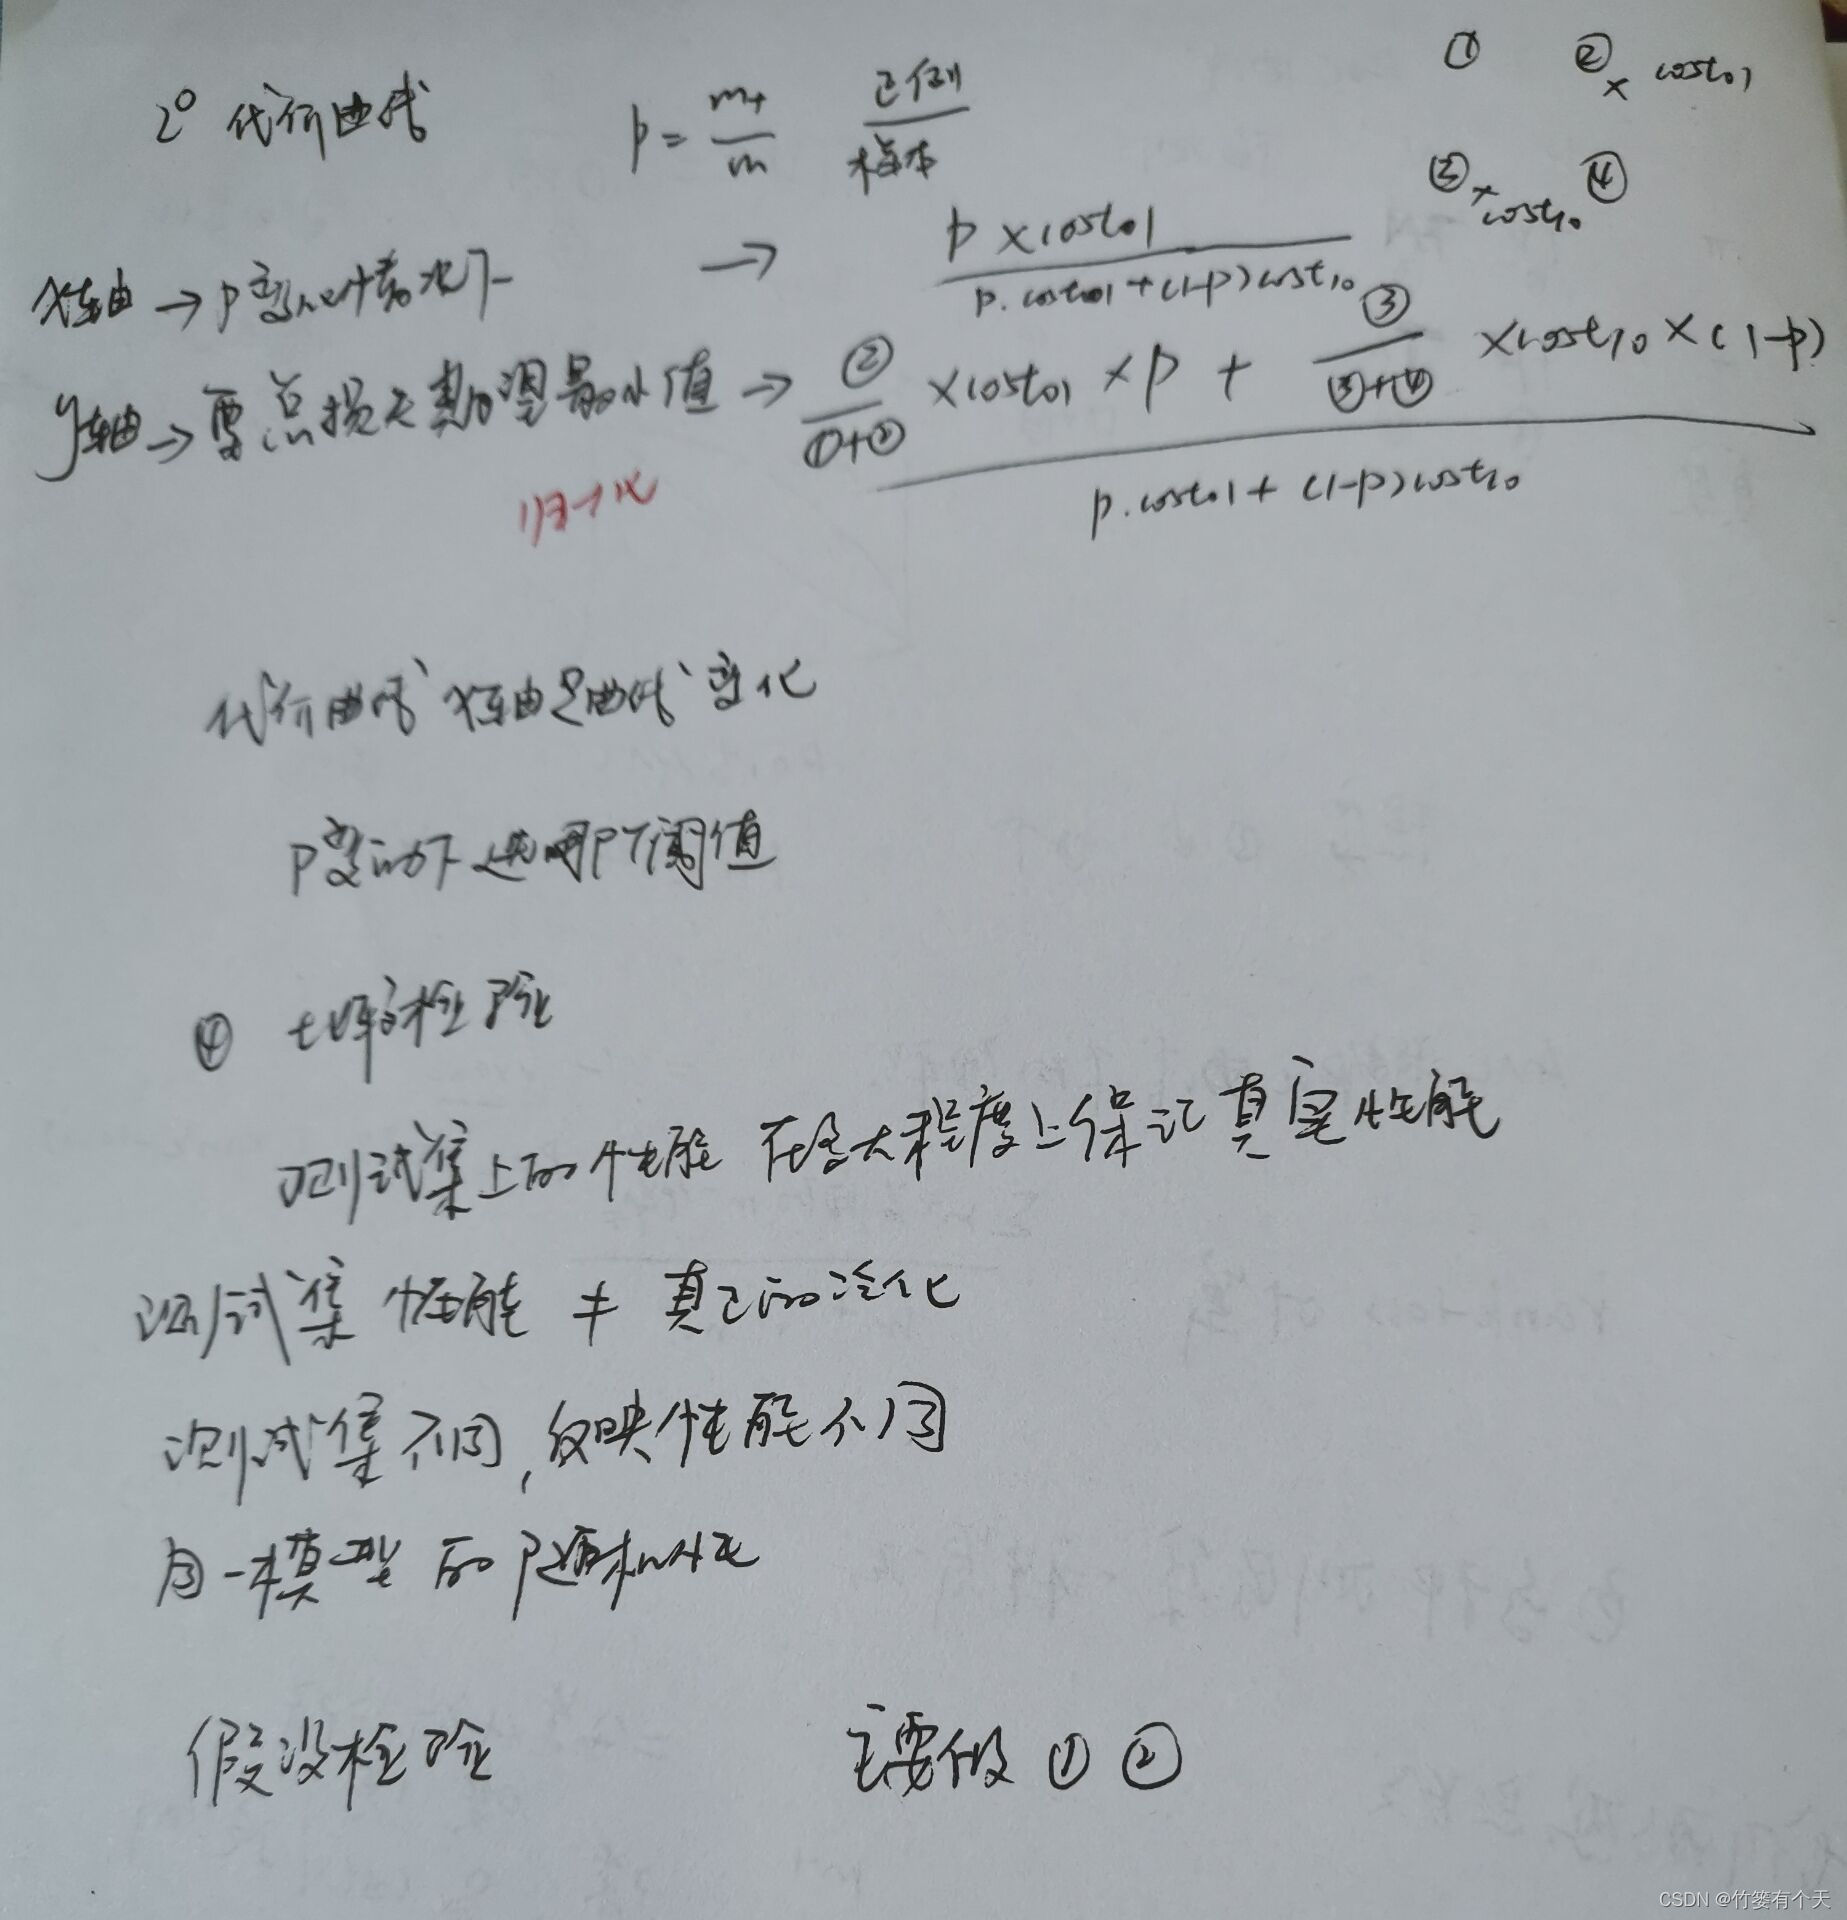 2° 代价曲线 p = m+/m 正例/样本
① ② × cost01
③ × cost10 ④
x轴 → p变化情况下 → p × cost01 / p·cost01 + (1-p)cost10
y轴 → 要总损失期望最小值 → ②/①+② × cost01 × p + ③/③+④ × cost10 × (1-p) / p·cost01 + (1-p)cost10
归一化
代价曲线 x轴是曲线变化
p变动下 选哪个阈值
④ 比较检验
测试集上的性能 在多大程度上保证真实性能
测试集性能 ≠ 真正的泛化
测试集不同,反映性能不同
同一模型的随机性
假设检验 主要做 ① ②
CSDN @竹篓有个天